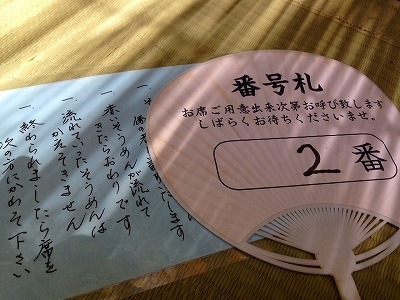 番号札
お席ご用意出来次第お呼び致します
しばらくお待ちくださいませ。
2番
が流れて
きたらおわりです
一、流れていったそうめんは
かえってきません
一、終められましたら席を
次の方にかわって下さい